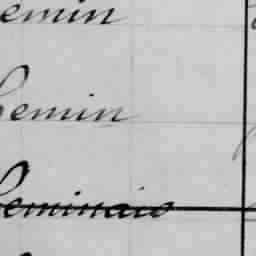 emin
Semin
Seminaio